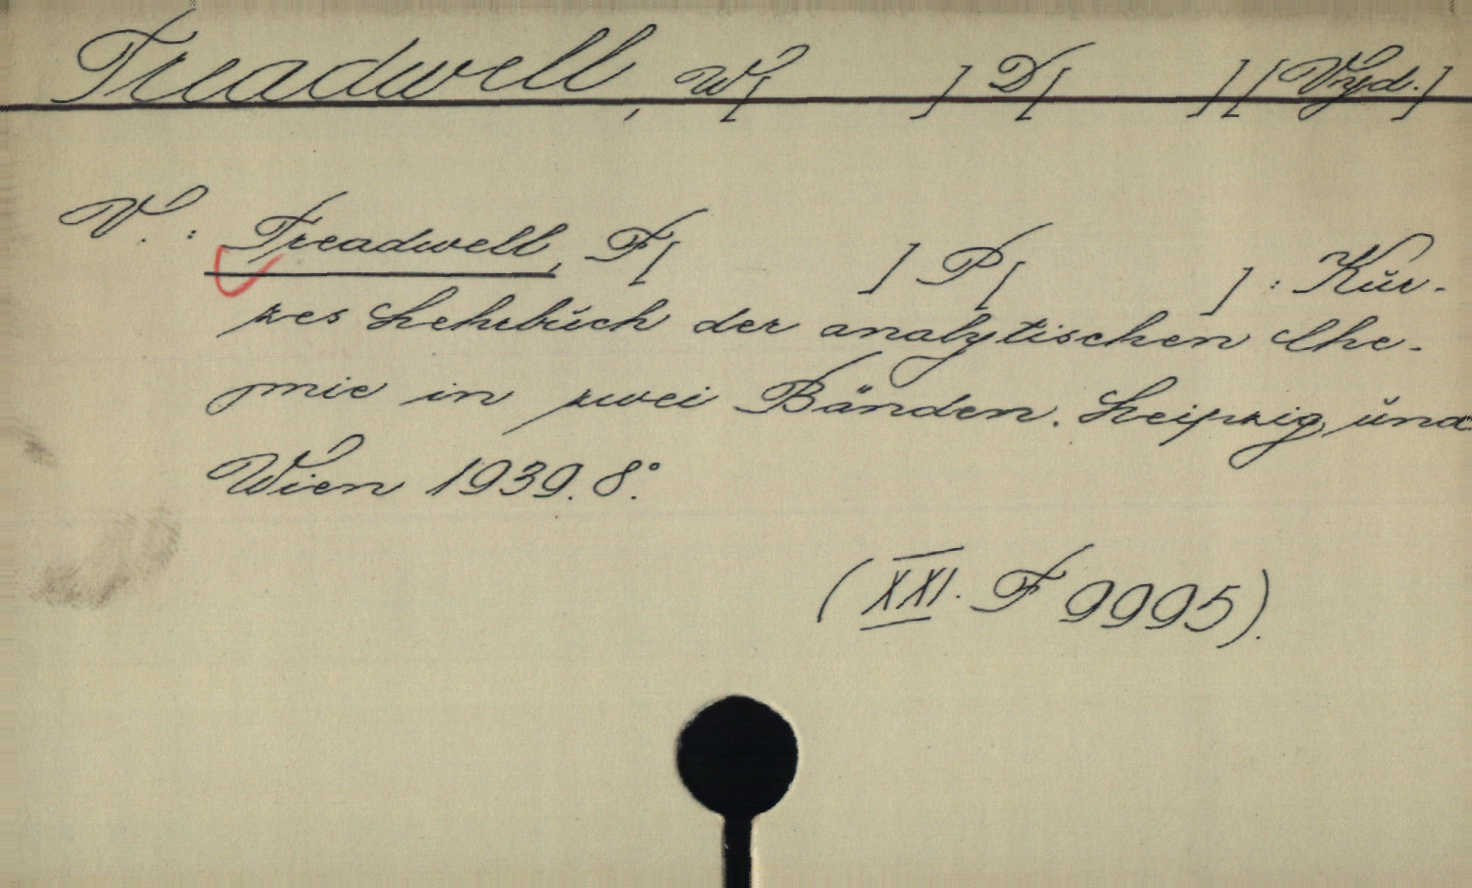 Treadwell, W[ ] D[ ] [Vyd.]
V.: Treadwell, F[ ] P[ ]: Kur-
zes Lehrbuch der analytischen Che-
mie in zwei Bänden. Leipzig und
Wien 1939. 8°.
(XXI. F 9995).